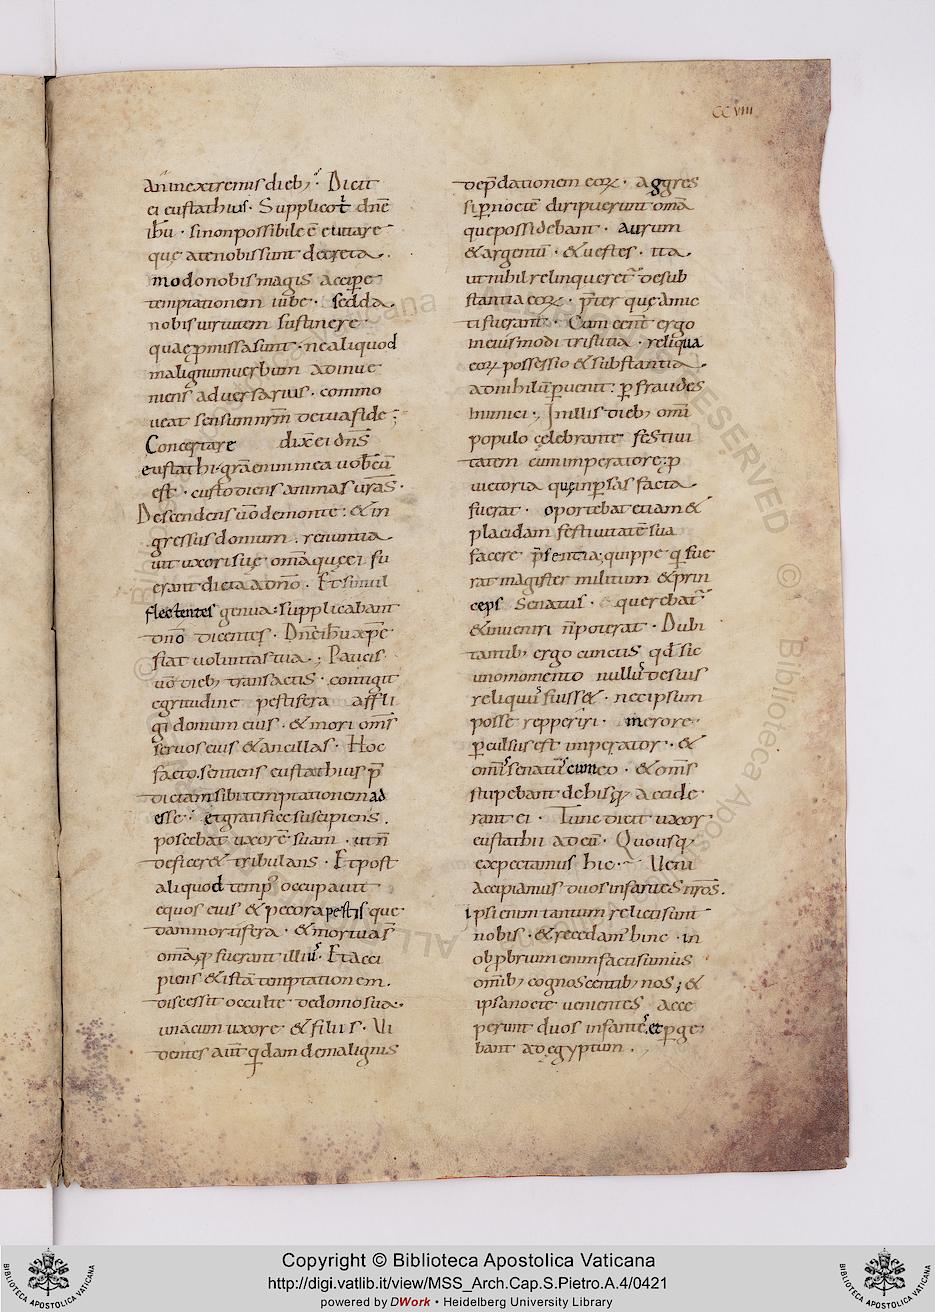 CCVIII
an inextremis dieb; · Dicit
ei eustathius · Supplicot dnē
ihū · sinonpossibile ē euitare
quę atenobis sunt decreta ·
modonobismagis accipere
temptationem iube · sedda
nobis uirtutem sustinere
quaępmissasunt · nealiquod
malignumuerbum adinue
niens aduersarius · commo
ueat sensumnrm̄ detuafide ;
Concertare dixͭ ei dnS
eustathi · grāenimmea uobcū
est · custodiens animas urās ·
Descendens ūo demonte : & in
gressus domum . renuntia
uit uxorisuę omāquęei fu
erant dicta adnō · Et simul
flectentes genua : supplicabant
dnō dicentes · Dnēihūxpē
fiat uoluntas tua ; Paucis
ūo dieb; transactis · contigit
egritudine pestifera affli
gi domum eius · & mori oms
seruos eius & ancillas · Hoc
facto . sentiens eustathius p̄
dictam sibi temptationem ad
esse · et gratifice suscipiens .
poscebat uxorē suam · ut n̄
deficer& tribulans · Et post
aliquod temp' occupauit
equos eius & pecora pestis que
dam mortifera · & mortua s̄
omāq; fuerant illius · Et acci
piens & istā temptationem .
discessit occulte dedomo sua .
unacum uxore & filiis · Ui
dentes aut̄ qdam demalignis
dep̄dationem eoꝝ · aggres
si p noctē diripuerunt omā
que possidebant · aurum
& argentū · & uestes · ita
ut nihil relinqueret' desub
stantia eoꝝ · p̄ter quę amic
ti fuerant · Cum cent ergo
ineiusmodi tristitia · reliqua
eoꝝ possessio & substantia
adnihilū puenit : p fraudes
inimici · Inillis dieb; omi
populo cęlebrante festiui
tatem cum imperatore : p
uictoria quęinpsas facta
fuerat · oportebat etiam &
placidam festiuitatē sua
facere p̄sentia, quippe q fue
rat magister militum & prin
ceps Senatus · & querebat'
& inueniri n̄poterat · Dubi
tantib; ergo cunctis qd sic
unomomento nullus desuis
reliquus fuiss& · necipsum
posse repperiri · merore
pculsus est imperator · &
omis senatus cumeo · & oms
stupebant dehisq; accide
rant ei · Tunc dicit uxor
eustathii adeū · Quousq;
expectamus hic · Ueni
accipiamus duos infantes nrōs .
ipsi enim tantum relicti sunt
nobis · & recedam' hinc · in
obpbrium enim facti sumus
omib; cognoscentib; nos ; &
ipsa nocte uenientes acce
perunt duos infantes, et pge
bant adęgyptum .
Copyright © Biblioteca Apostolica Vaticana
http://digi.vatlib.it/view/MSS_Arch.Cap.S.Pietro.A.4/0421
powered by DWork • Heidelberg University Library